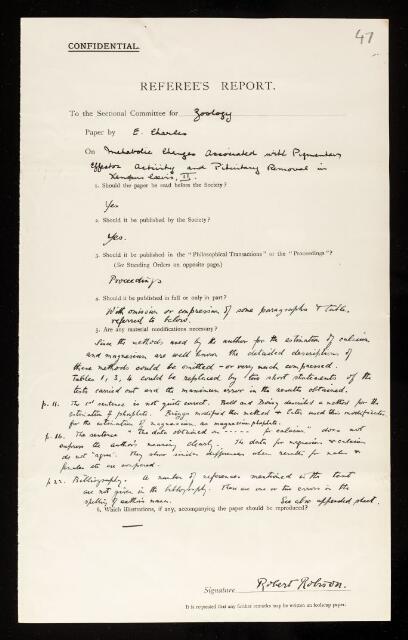 47
CONFIDENTIAL.
REFEREE'S REPORT.
To the Sectional Committee for Zoology
Paper by E. Charles
On Metabolic Changes Associated with Pigmentary
Effector Activity and Pituitary Removal in
Xenopus laevis, II.
1. Should the paper be read before the Society?
Yes
2. Should it be published by the Society?
Yes.
3. Should it be published in the "Philosophical Transactions" or the "Proceedings"?
(See Standing Orders on opposite page.)
Proceedings
4. Should it be published in full or only in part?
With omission or compression of some paragraphs & table,
referred to below.
5. Are any material modifications necessary?
Since the methods used by the author for the estimation of calcium
and magnesium are well known the detailed descriptions of
these methods could be omitted - or very much compressed.
Tables 1, 3, 4 could be replaced by short statements of the
tests carried out and the maximum error in the results obtained.
p. 11. The 1st sentence is not quite correct. Bell and Doisy described a method for the
estimation of phosphate. Briggs modified this method & later used this modification
for the estimation of magnesium as magnesium phosphate.
p. 16. The sentence "The data obtained in ----- for calcium" does not
express the author's meaning clearly. The data for magnesium & calcium
do not "agree". They show similar differences when results for males &
females etc are compared.
p. 22. Bibliography. A number of references mentioned in the text
are not given in the bibliography. There are one or two errors in the
spelling of author's names. See also appended sheet.
6. Which illustrations, if any, accompanying the paper should be reproduced?
—
Signature Robert Robison.
It is requested that any further remarks may be written on foolscap paper.